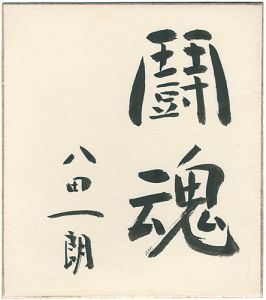 闘魂
八田一朗